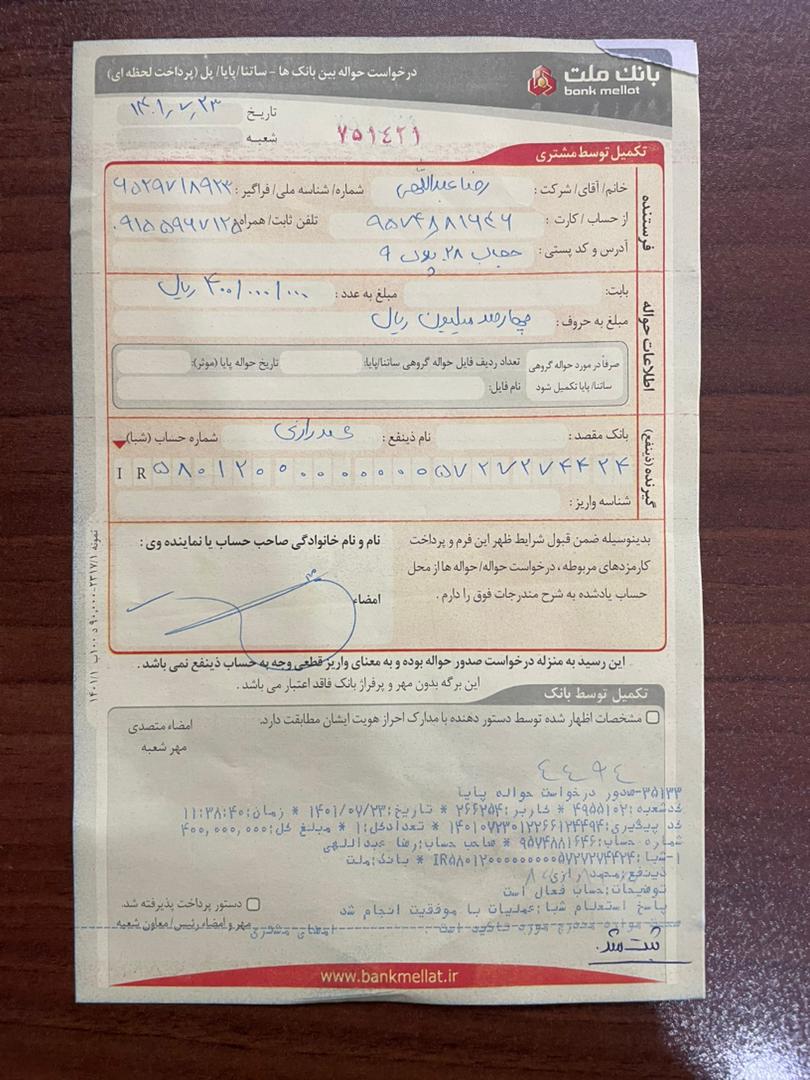 بانک ملت
bank mellat
درخواست حواله بین بانک ها - ساتنا/پایا/پل (پرداخت لحظه ای)
تاریخ ۱۴۰۱,۷,۲۳
شعبه
۷۵۱٤۲۱
تکمیل توسط مشتری
فرستنده
خانم/آقای/شرکت : رضا عبداللهی شماره/شناسه ملی/فراگیر :
از حساب/کارت : ۹۵۷۴۸۸۱۶۴۶ تلفن ثابت/همراه
آدرس و کد پستی : حجاب ۲۸ پونه ۹
اطلاعات حواله
بابت: مبلغ به عدد : ۴۰۰/۰۰۰/۰۰۰ ریال
مبلغ به حروف : چهارصد میلیون ریال
صرفاً در مورد حواله گروهی ساتنا/پایا تکمیل شود
تعداد ردیف فایل حواله گروهی ساتنا/پایا: تاریخ حواله پایا (موثر):
نام فایل:
گیرنده (ذینفع)
بانک مقصد : نام ذینفع : محمد رازی شماره حساب (شبا)
IR۵۸۰۱۲۰۰۰۰۰۰۰۰۰۰۵۷۲۷۲۷۴۴۲۴
شناسه واریز :
بدینوسیله ضمن قبول شرایط ظهر این فرم و پرداخت
کارمزدهای مربوطه ، درخواست حواله/حواله ها از محل
حساب یادشده به شرح مندرجات فوق را دارم .
نام و نام خانوادگی صاحب حساب یا نماینده وی :
امضاء
این رسید به منزله درخواست صدور حواله بوده و به معنای واریز قطعی وجه به حساب ذینفع نمی باشد .
این برگه بدون مهر و پرفراژ بانک فاقد اعتبار می باشد .
تکمیل توسط بانک
مشخصات اظهار شده توسط دستور دهنده با مدارک احراز هویت ایشان مطابقت دارد.
امضاء متصدی
مهر شعبه
٤٤٩٤
۳۵۱۳۳-صدور درخواست حواله پایا
کدشعبه:۴۹۵۵۱۰۲ * کاربر:۲۶۶۲۵۴ * تاریخ:۱۴۰۱/۰۷/۲۳ * زمان:۱۱:۳۸:۴۰
کد پیگیری:۱۴۰۱۰۷۲۳۰۱۲۲۶۶۱۲۴۴۹۴ * تعدادکل:۱ * مبلغ کل:۴۰۰,۰۰۰,۰۰۰
شماره حساب:۹۵۷۴۸۸۱۶۴۶ * صاحب حساب:رضا عبداللهی
۱-شبا:IR۵۸۰۱۲۰۰۰۰۰۰۰۰۰۰۵۷۲۷۲۷۴۴۲۴ * بانک:ملت
ذینفع:محمد رازی
توضیحات:حساب فعال است
پاسخ استعلام شبا:عملیات با موفقیت انجام شد
امضای مشتری
ثبت شد.
دستور پرداخت پذیرفته شد.
مهر و امضاء رئیس/معاون شعبه
www.bankmellat.ir